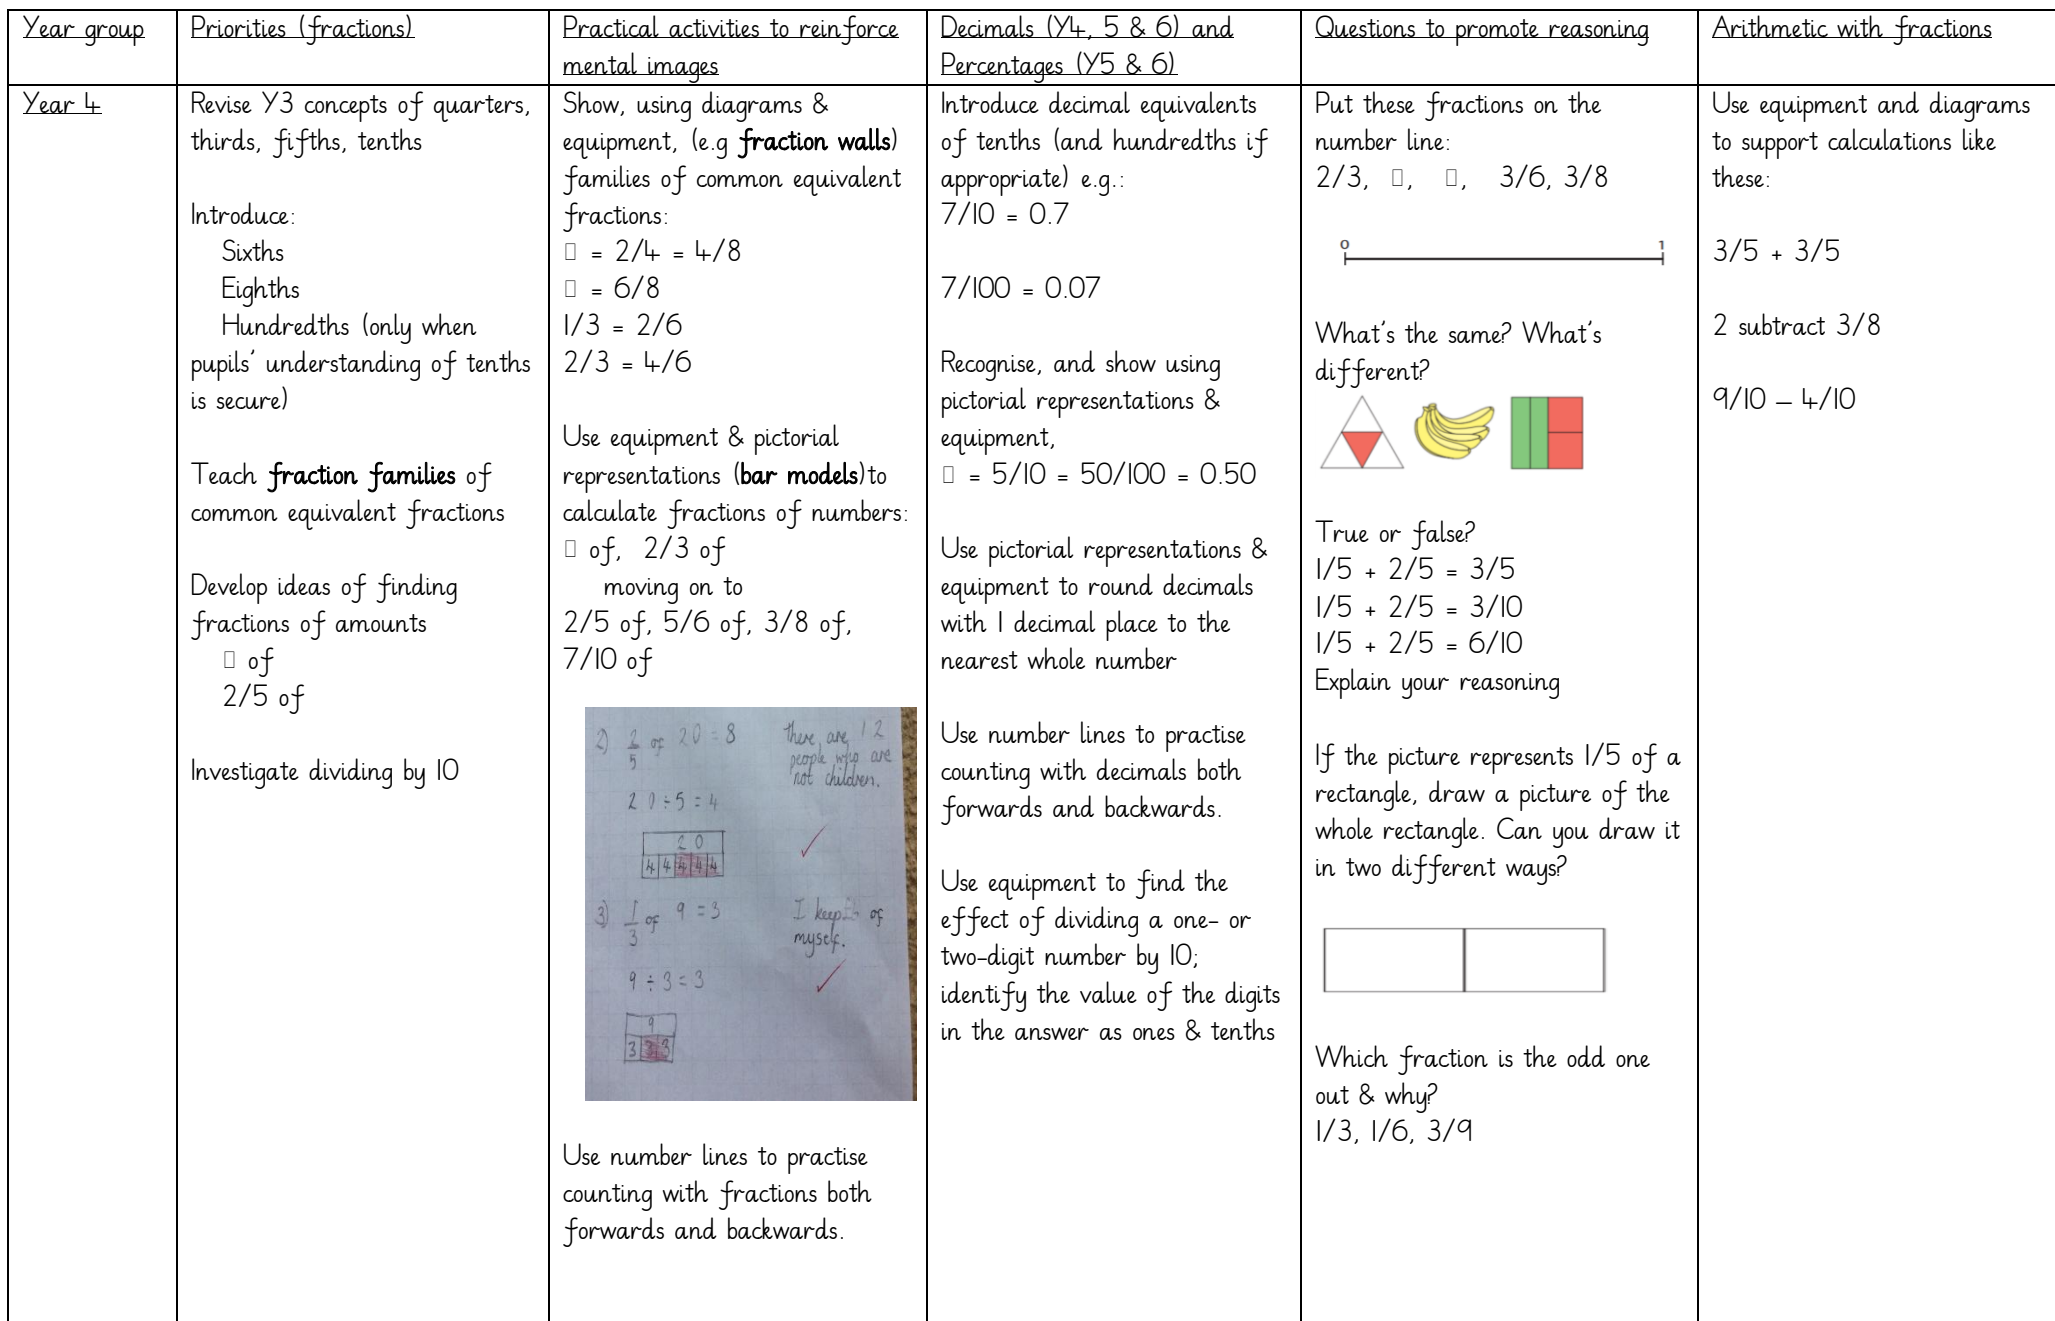 Year group
Priorities (fractions)
Practical activities to reinforce
mental images
Decimals (Y4, 5 & 6) and
Percentages (Y5 & 6)
Questions to promote reasoning
Arithmetic with fractions
Year 4
Revise Y3 concepts of quarters,
thirds, fifths, tenths
Introduce:
Sixths
Eighths
Hundredths (only when
pupils' understanding of tenths
is secure)
Teach fraction families of
common equivalent fractions
Develop ideas of finding
fractions of amounts
▯ of
2/5 of
Investigate dividing by 10
Show, using diagrams &
equipment, (e.g fraction walls)
families of common equivalent
fractions:
▯ = 2/4 = 4/8
▯ = 6/8
1/3 = 2/6
2/3 = 4/6
Use equipment & pictorial
representations (bar models)to
calculate fractions of numbers:
▯ of, 2/3 of
moving on to
2/5 of, 5/6 of, 3/8 of,
7/10 of
2) 2/5 of 20 = 8
there are 12
people who are
not children.
20 ÷ 5 = 4
20
4 4 4 4 4
3) 1/3 of 9 = 3
I keep of
myself.
9 ÷ 3 = 3
9
3 3 3
Use number lines to practise
counting with fractions both
forwards and backwards.
Introduce decimal equivalents
of tenths (and hundredths if
appropriate) e.g.:
7/10 = 0.7
7/100 = 0.07
Recognise, and show using
pictorial representations &
equipment,
▯ = 5/10 = 50/100 = 0.50
Use pictorial representations &
equipment to round decimals
with 1 decimal place to the
nearest whole number
Use number lines to practise
counting with decimals both
forwards and backwards.
Use equipment to find the
effect of dividing a one- or
two-digit number by 10;
identify the value of the digits
in the answer as ones & tenths
Put these fractions on the
number line:
2/3, ▯, ▯, 3/6, 3/8
0 1
What's the same? What's
different?
True or false?
1/5 + 2/5 = 3/5
1/5 + 2/5 = 3/10
1/5 + 2/5 = 6/10
Explain your reasoning
If the picture represents 1/5 of a
rectangle, draw a picture of the
whole rectangle. Can you draw it
in two different ways?
Which fraction is the odd one
out & why?
1/3, 1/6, 3/9
Use equipment and diagrams
to support calculations like
these:
3/5 + 3/5
2 subtract 3/8
9/10 – 4/10